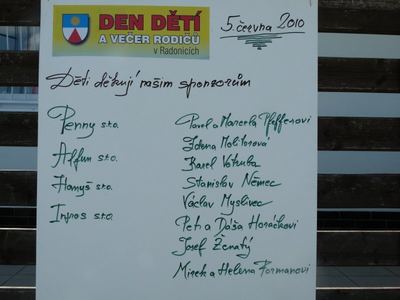 DEN DĚTÍ
A VEČER RODIČŮ
v Radonicích
5. června 2010
Děti děkují našim sponzorům
Penny s.r.o.
Alfun s.r.o.
Hanyš s.r.o.
Inpos s.r.o.
Pavel a Marcela Pfefferovi
Zdena Molitorová
Karel Votruba
Stanislav Němec
Václav Myslivec
Petr a Dáša Horáčkovi
Josef Ženatý
Mirek a Helena Formanovi